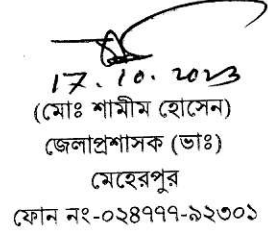 17.10.2023
(মোঃ শামীম হোসেন)
জেলাপ্রশাসক (ভাঃ)
মেহেরপুর
ফোন নং-০২৪৭৭৭-৯২৩০১